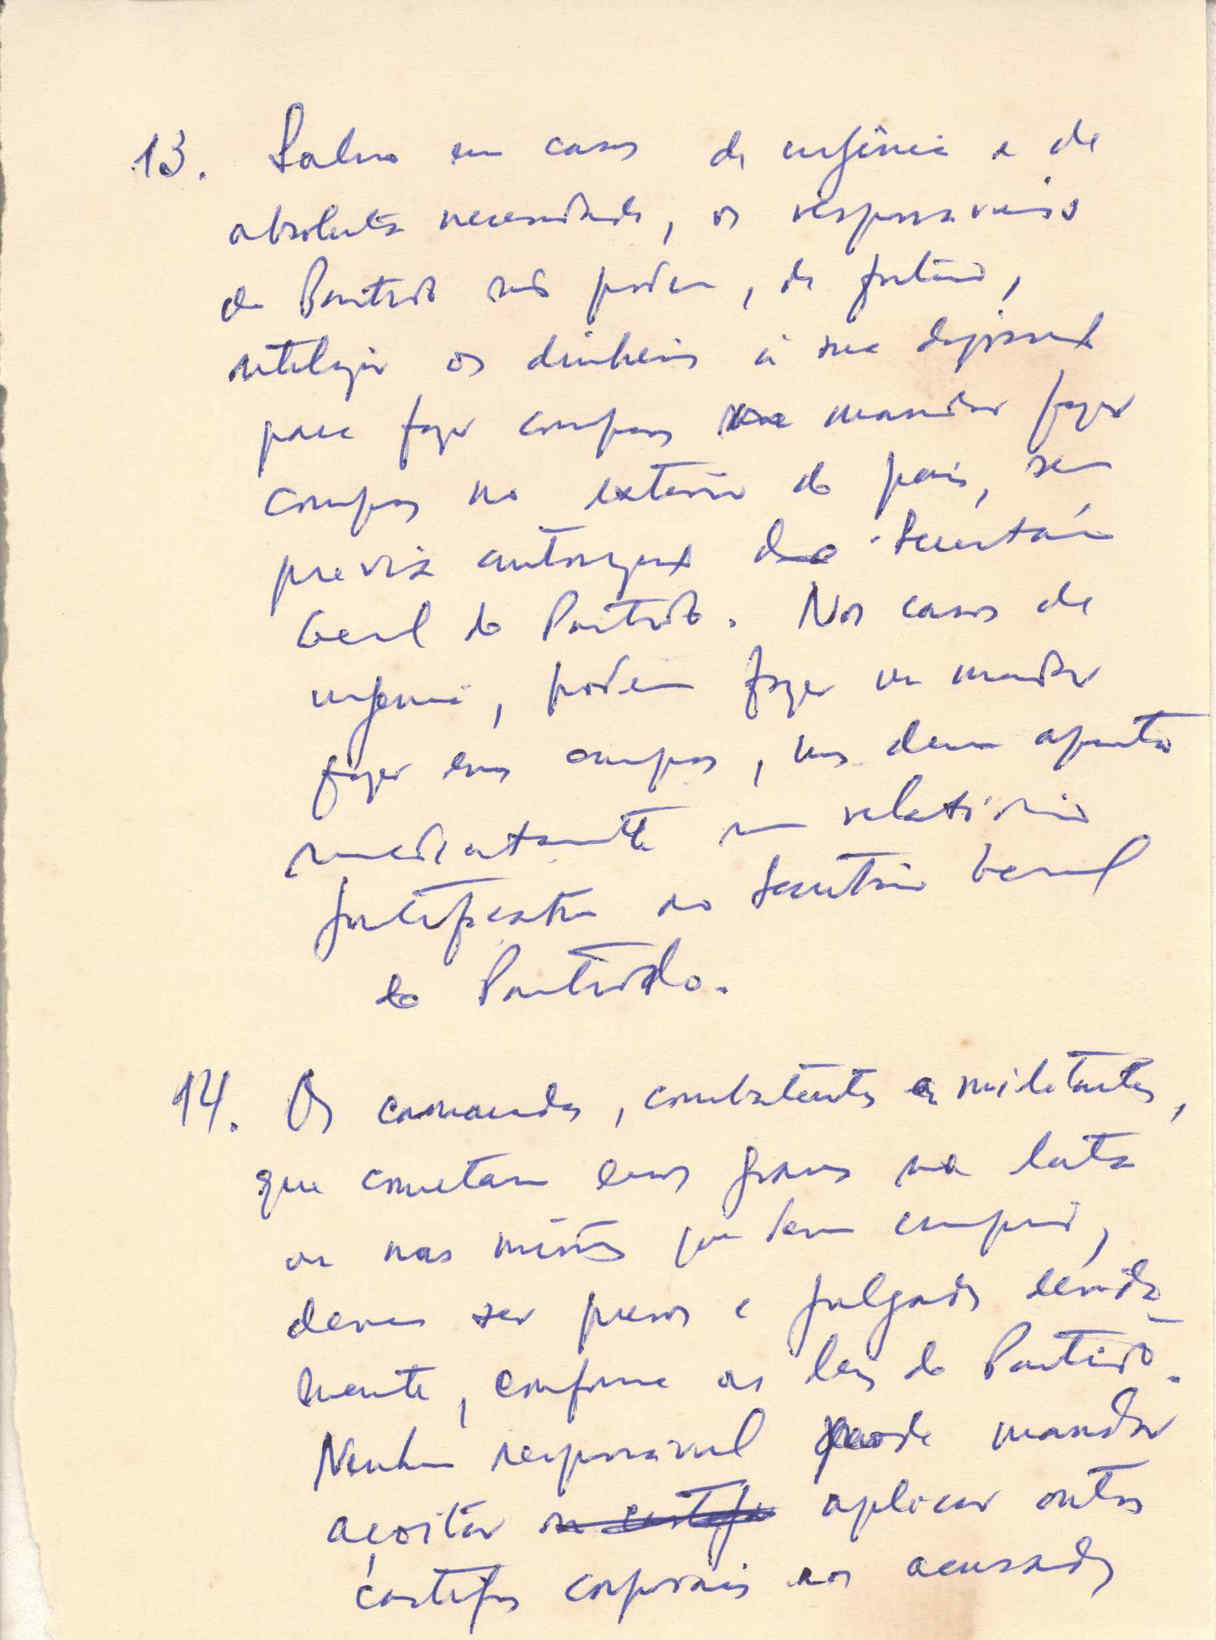 13. Salvo em casos de urgência e de
absoluta necessidade, os responsáveis
do Partido não podem, de futuro,
utilizar os dinheiros à sua disposição
para fazer compras ou mandar fazer
compras no exterior do país, sem
previa autorização do Secretário
Geral do Partido. Nos casos de
urgência, podem fazer ou mandar
fazer essas compras, mas devem apresentar
imediatamente um relatório
justificativo ao Secretário Geral
do Partido.
14. Os camaradas, combatentes e militantes,
que cometam erros graves na luta
ou nas missões que devem cumprir,
devem ser presos e julgados devida-
mente, conforme as leis do Partido.
Nenhum responsável pode mandar
açoitar ou castigar aplicar outros
castigos corporais aos acusados